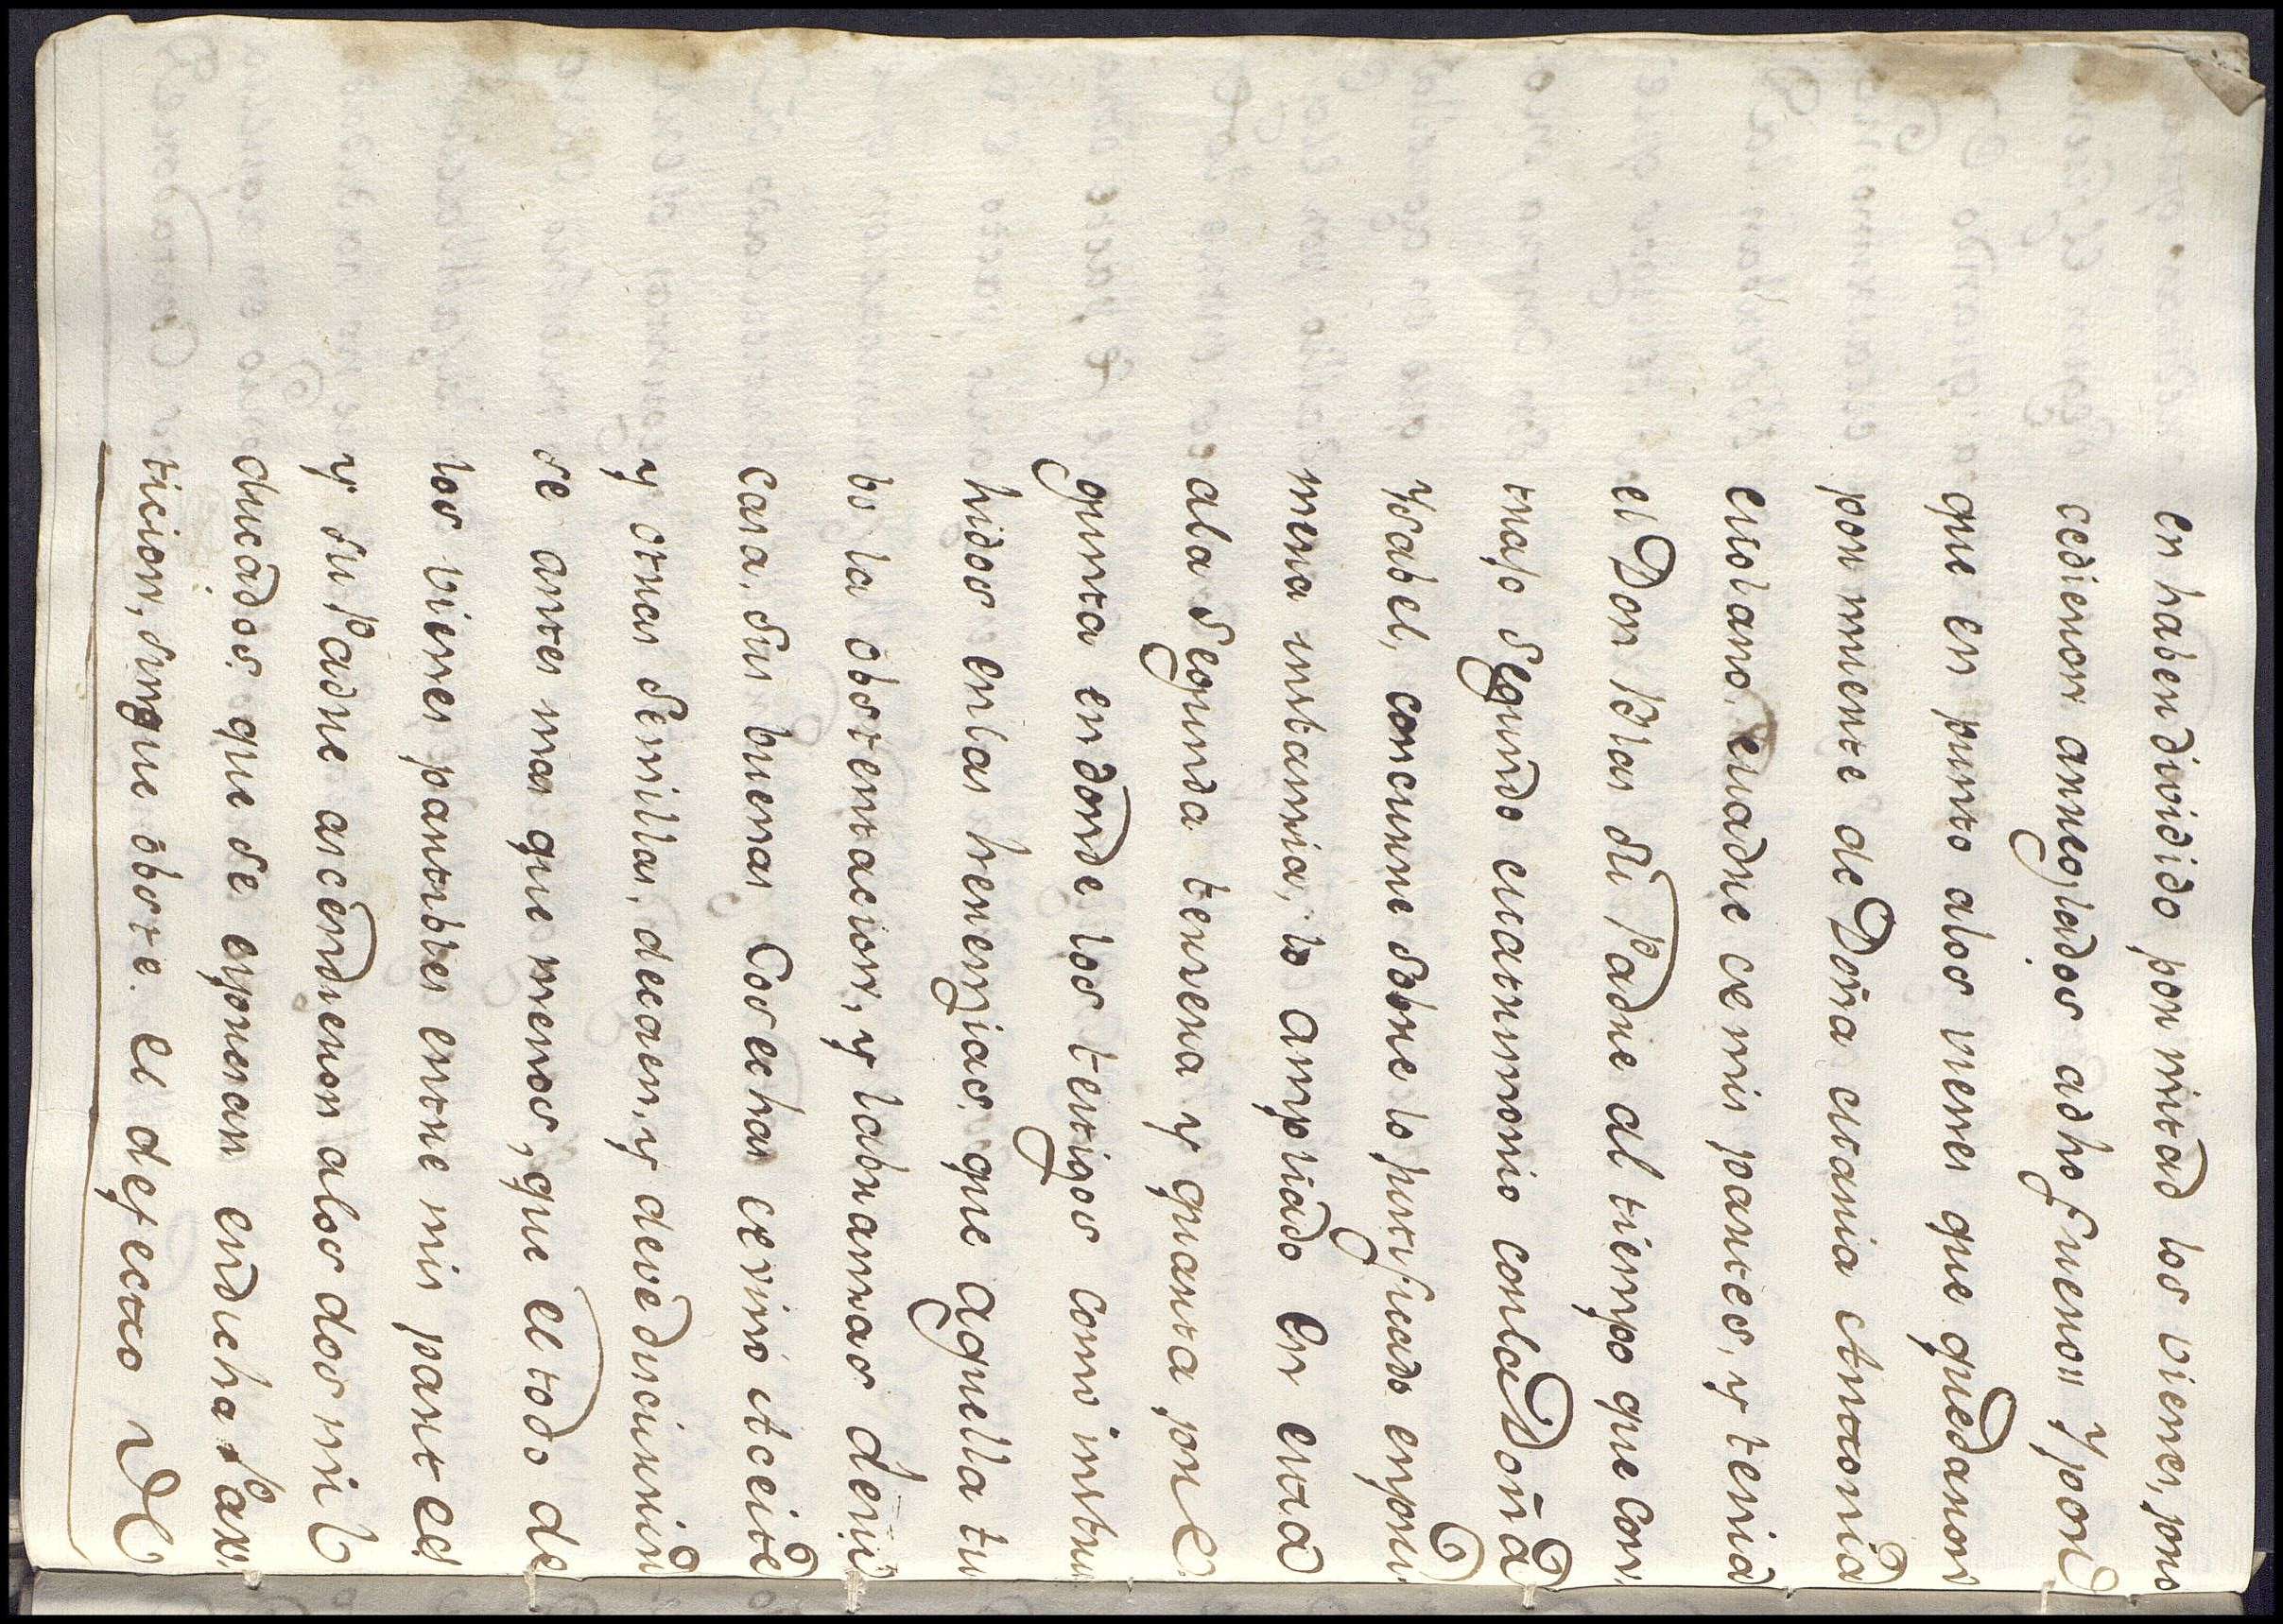 en haver dividido por mitad los vienes, pro
cedieron arreglados a dho fuero, y por
que en punto a los vienes que quedaron
por muerte de Doña Maria Antonia
Molano, Madre de mis partes, y tenia
el Don Blas su Padre al tiempo que con
trajo segundo Matrimonio con la Doña
Ysabel, concurre sobre lo justificado en pri
mera instancia, lo ampliado en esta
a la segunda tercera y quarta pre
gunta en donde los testigos como instru
hidos en las herencias, que aquella tu
bo la obstentacion, y labranzas de mi
casa, sus buenas Cosechas de vino Aceite
y otras semillas, decaen, y deve discurrir
se antes mas que menos, que el todo de
los vienes partibles entre mis partes
y su Padre ascendieron a los dos mil
ducados que se expresan en dicha Par
ticion, sin que obste el defecto de